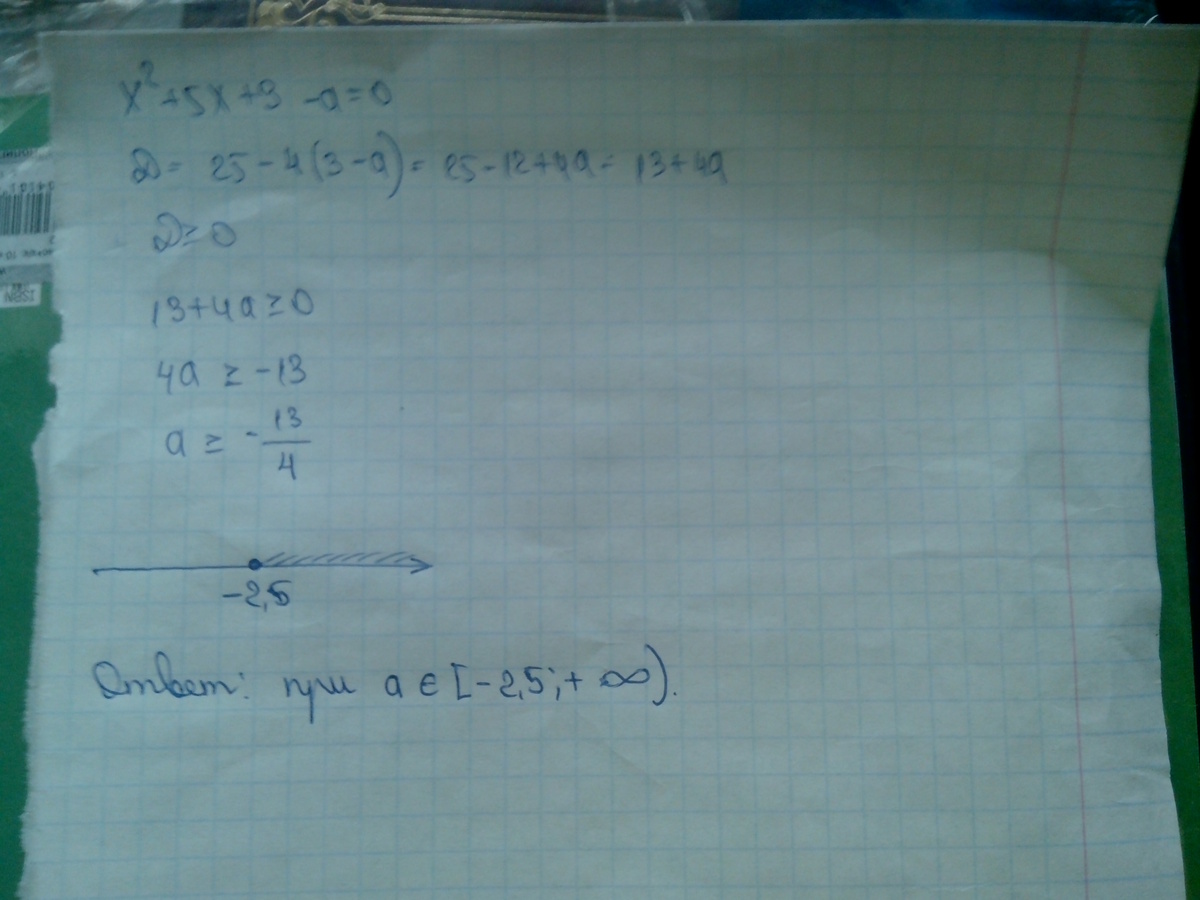 x² + 5x + 3 - a = 0
D = 25 - 4(3 - a) = 25 - 12 + 4a = 13 + 4a
D ≥ 0
13 + 4a ≥ 0
4a ≥ -13
a ≥ -13/4
-2,5
Ответ: при a ∈ [-2,5; + ∞).
ISBN